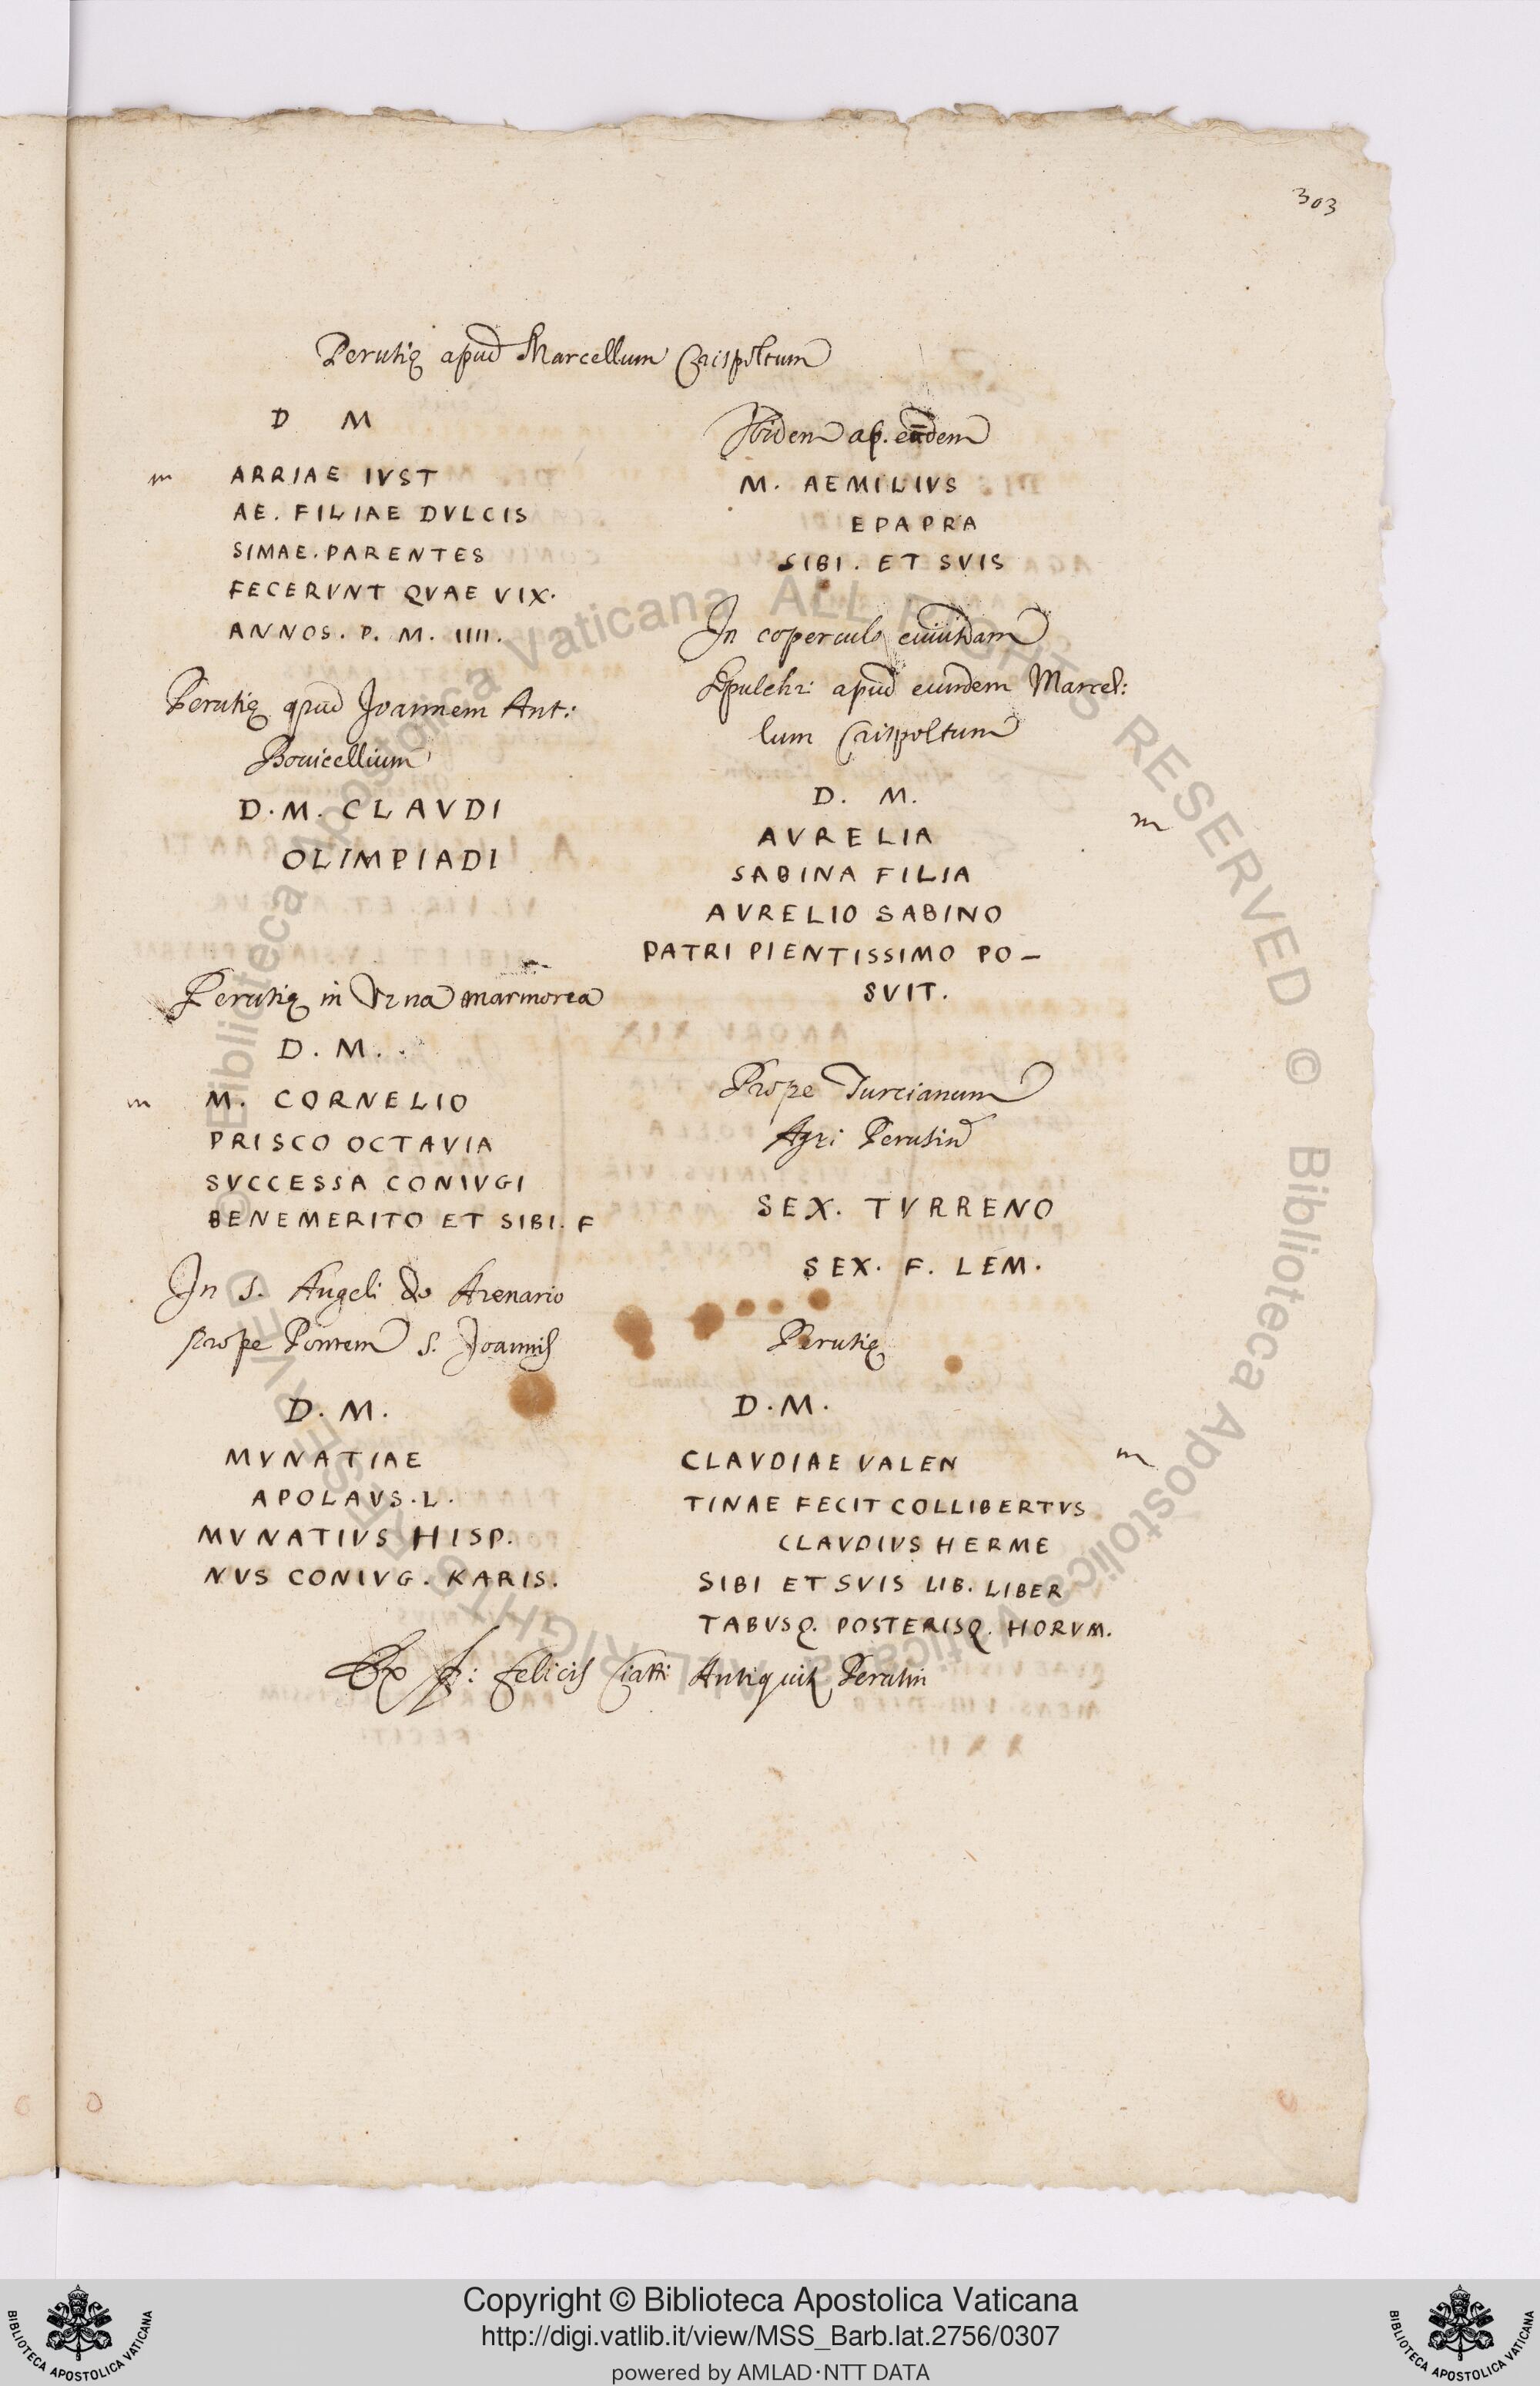 303
Perusię apud Marcellum Crispoltum
D M
m ARRIAE IVST
AE. FILIAE DVLCIS
SIMAE. PARENTES
FECERVNT QVAE VIX.
ANNOS. P. M. IIII.
Perusię apud Joannem Ant:
Bouicellium
D. M. CLAVDI
OLIMPIADI
Perusię in Vrna marmorea
D. M.
m M. CORNELIO
PRISCO OCTAVIA
SVCCESSA CONIVGI
BENEMERITO ET SIBI. F
In S. Angeli de Arenario
prope Pontem S. Joannis
D. M.
MVNATIAE
APOLAVS. L.
MVNATIVS HISP.
NVS CONIVG. KARIS.
Ibidem ap. eūdem
M. AEMILIVS
EPAPRA
SIBI. ET SVIS
In coperculo cuiusdam
Sepulchri apud eumdem Marcel:
lum Crispoltum
D. M.
AVRELIA m
SABINA FILIA
AVRELIO SABINO
PATRI PIENTISSIMO PO-
SVIT.
Prope Turcianum
Agri Perusin
SEX. TVRRENO
SEX. F. LEM.
Perusię
D. M.
CLAVDIAE VALEN m
TINAE FECIT COLLIBERTVS
CLAVDIVS HERME
SIBI ET SVIS LIB. LIBER
TABVSQ. POSTERISQ. HORVM.
Ex f: felicis Ciatti Antiquit Perusin
© Biblioteca Apostolica Vaticana ALL RIGHTS RESERVED
© Biblioteca Apostolica Vaticana ALL RIGHTS RESERVED
Copyright © Biblioteca Apostolica Vaticana
http://digi.vatlib.it/view/MSS_Barb.lat.2756/0307
powered by AMLAD·NTT DATA
BIBLIOTECA APOSTOLICA VATICANA
BIBLIOTECA APOSTOLICA VATICANA